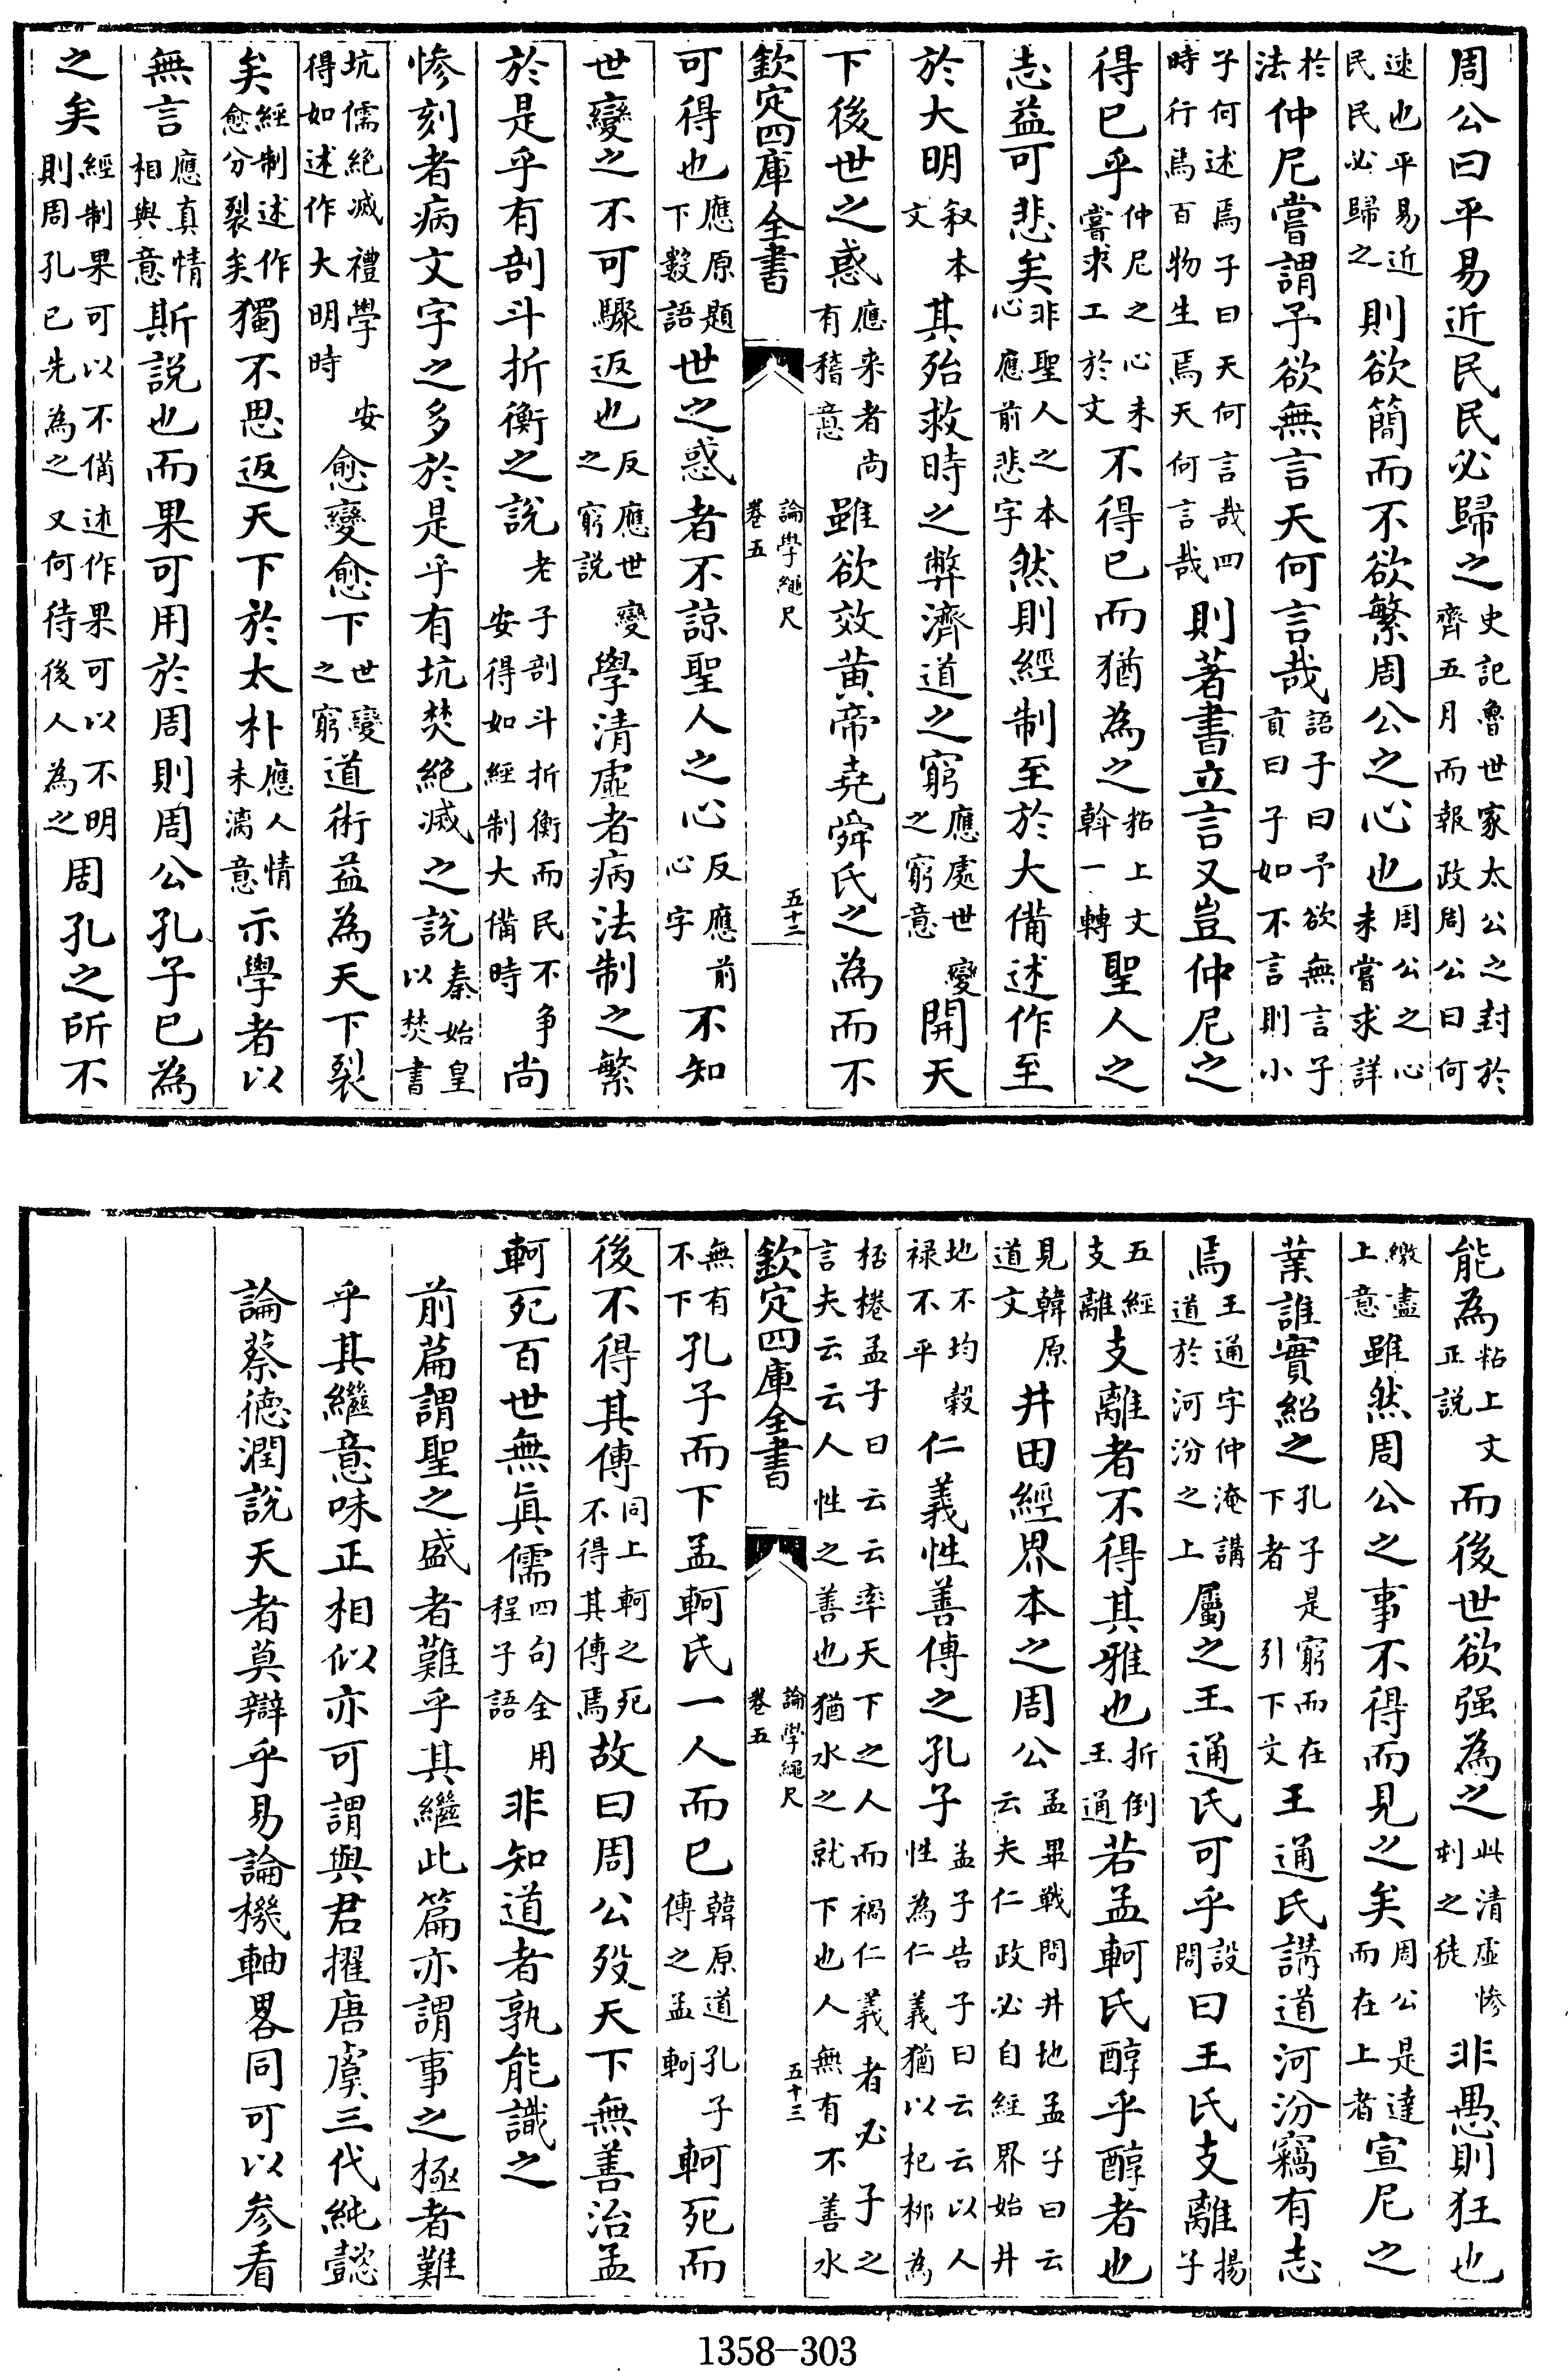 周公曰平易近民民必歸之史記魯世家太公之封於齊五月而報政周公曰何
速也平易近民民必歸之則欲簡而不欲繁周公之心也周公之心未嘗求詳
於法仲尼嘗謂予欲無言天何言哉語子曰予欲無言子貢曰子如不言則小
子何述焉子曰天何言哉四時行焉百物生焉天何言哉則著書立言又豈仲尼之
得已乎仲尼之心未嘗求工於文不得已而猶為之粘上文斡一轉聖人之
志益可悲矣非聖人之本心應前悲字然則經制至於大備述作至
於大明叙本文其殆救時之弊濟道之窮應處世變之窮意開天
下後世之惑應来者尚有稽意雖欲效黄帝堯舜氏之為而不
欽定四庫全書
論學繩尺
卷五
五十二
可得也應原題下數語世之惑者不諒聖人之心反應前心字不知
世變之不可驟返也反應世變之窮說學清虛者病法制之繁
於是乎有剖斗折衡之說老子剖斗折衡而民不争安得如經制大備時尚
惨刻者病文字之多於是乎有坑焚絶滅之說秦始皇以焚書
坑儒絶滅禮學安得如述作大明時愈變愈下世變之窮道術益為天下裂
矣經制述作愈分裂矣獨不思返天下於太朴應人情未漓意示學者以
無言應真情相與意斯說也而果可用於周則周公孔子已為
之矣經制果可以不備述作果可以不明則周孔已先為之又何待後人為之周孔之所不
能為粘上文正說而後世欲强為之此清虛惨刻之徒非愚則狂也
繳盡上意雖然周公之事不得而見之矣周公是達而在上者宣尼之
業誰實紹之孔子是窮而在下者引下文王通氏講道河汾竊有志
焉王通字仲淹講道於河汾之上屬之王通氏可乎設問曰王氏支離揚子
五經支離支離者不得其雅也折倒王通若孟軻氏醇乎醇者也
見韓原道文井田經界本之周公孟畢戰問井地孟子曰云云夫仁政必自經界始井
地不均穀禄不平仁義性善傳之孔子孟子告子曰云云以人性為仁義猶以杞柳為
桮棬孟子曰云云率天下之人而禍仁義者必子之言夫云云人性之善也猶水之就下也人無有不善水
欽定四庫全書
論學繩尺
卷五
五十三
無有不下孔子而下孟軻氏一人而已韓原道孔子傳之孟軻軻死而
後不得其傳同上軻之死不得其傳焉故曰周公殁天下無善治孟
軻死百世無眞儒四句全用程子語非知道者孰能識之
前篇謂聖之盛者難乎其繼此篇亦謂事之極者難
乎其繼意味正相似亦可謂與君擢唐虞三代純懿
論蔡徳潤說天者莫辯乎易論機軸畧同可以参看
1358-303